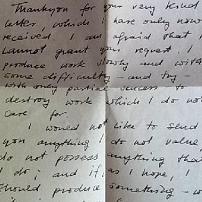 Thankyou for your very kind
letter, which I have only now
received. I am afraid that I
cannot grant your request. I
produce work slowly and with
some difficulty - and try -
with only partial success to
destroy work which I do not
care for.
I would not like to send
you anything I do not value,
do not possess anything that
I do; and if, as I hope, I
should produce something - w